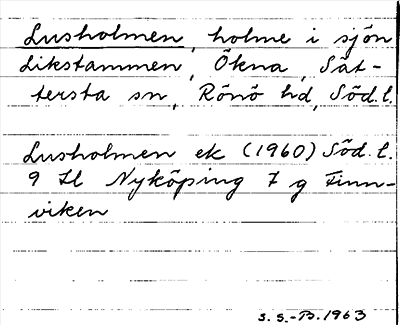 Lusholmen, holme i sjön
Likstammen, Ökna, Sät-
tersta sn, Rönö hd, Söd. l.
Lusholmen ek (1960) Söd. l.
9 Il Nyköping 7 g Finn-
viken
S. S.-B. 1963